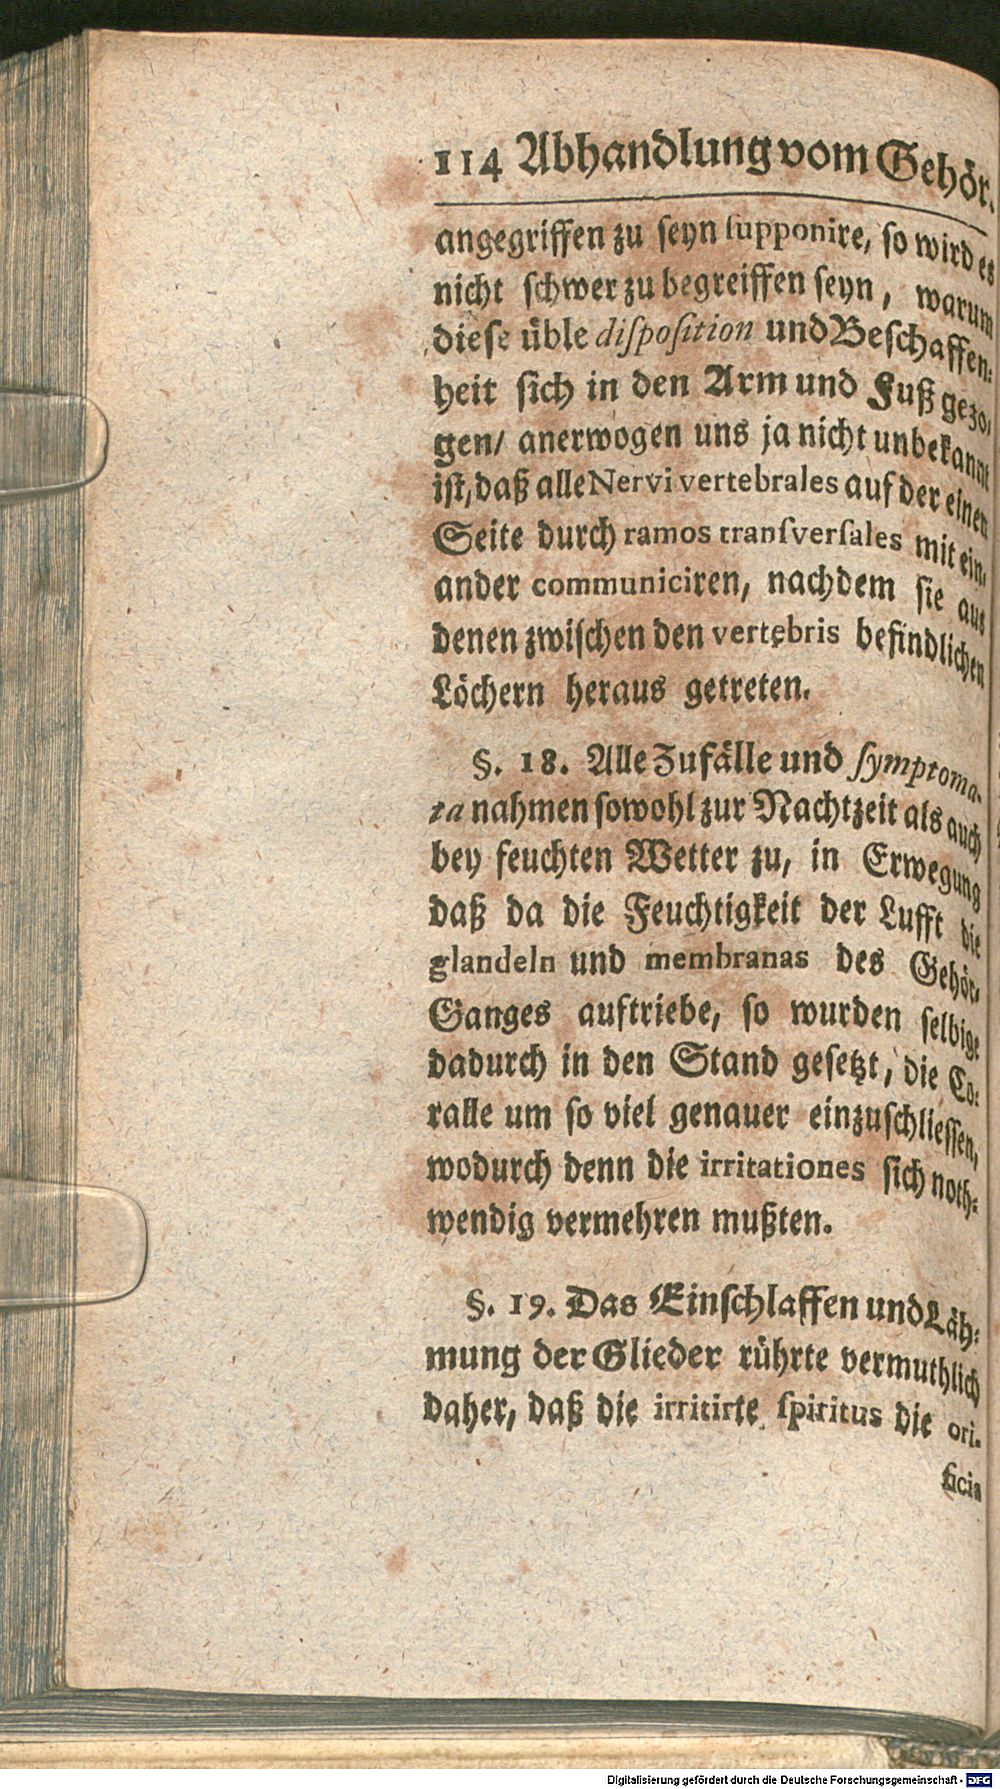 114 Abhandlung vom Gehör.
angegriffen zu seyn supponire, so wird es
nicht schwer zu begreiffen seyn, warum
diese üble disposition und Beschaffen-
heit sich in den Arm und Fuß gezo-
gen/ anerwogen uns ja nicht unbekannt
ist, daß alle Nervi vertebrales auf der einen
Seite durch ramos transversales mit ein-
ander communiciren, nachdem sie aus
denen zwischen den vertebris befindlichen
Löchern heraus getreten.
§. 18. Alle Zufälle und symptoma-
ta nahmen sowohl zur Nachtzeit als auch
bey feuchten Wetter zu, in Erwegung
daß da die Feuchtigkeit der Lufft die
glandeln und membranas des Gehör-
Ganges auftriebe, so wurden selbige
dadurch in den Stand gesetzt, die Co-
ralle um so viel genauer einzuschliessen,
wodurch denn die irritationes sich noth-
wendig vermehren mußten.
§. 19. Das Einschlaffen und Läh-
mung der Glieder rührte vermuthlich
daher, daß die irritirte spiritus die ori-
ficia
Digitalisierung gefördert durch die Deutsche Forschungsgemeinschaft - DFG